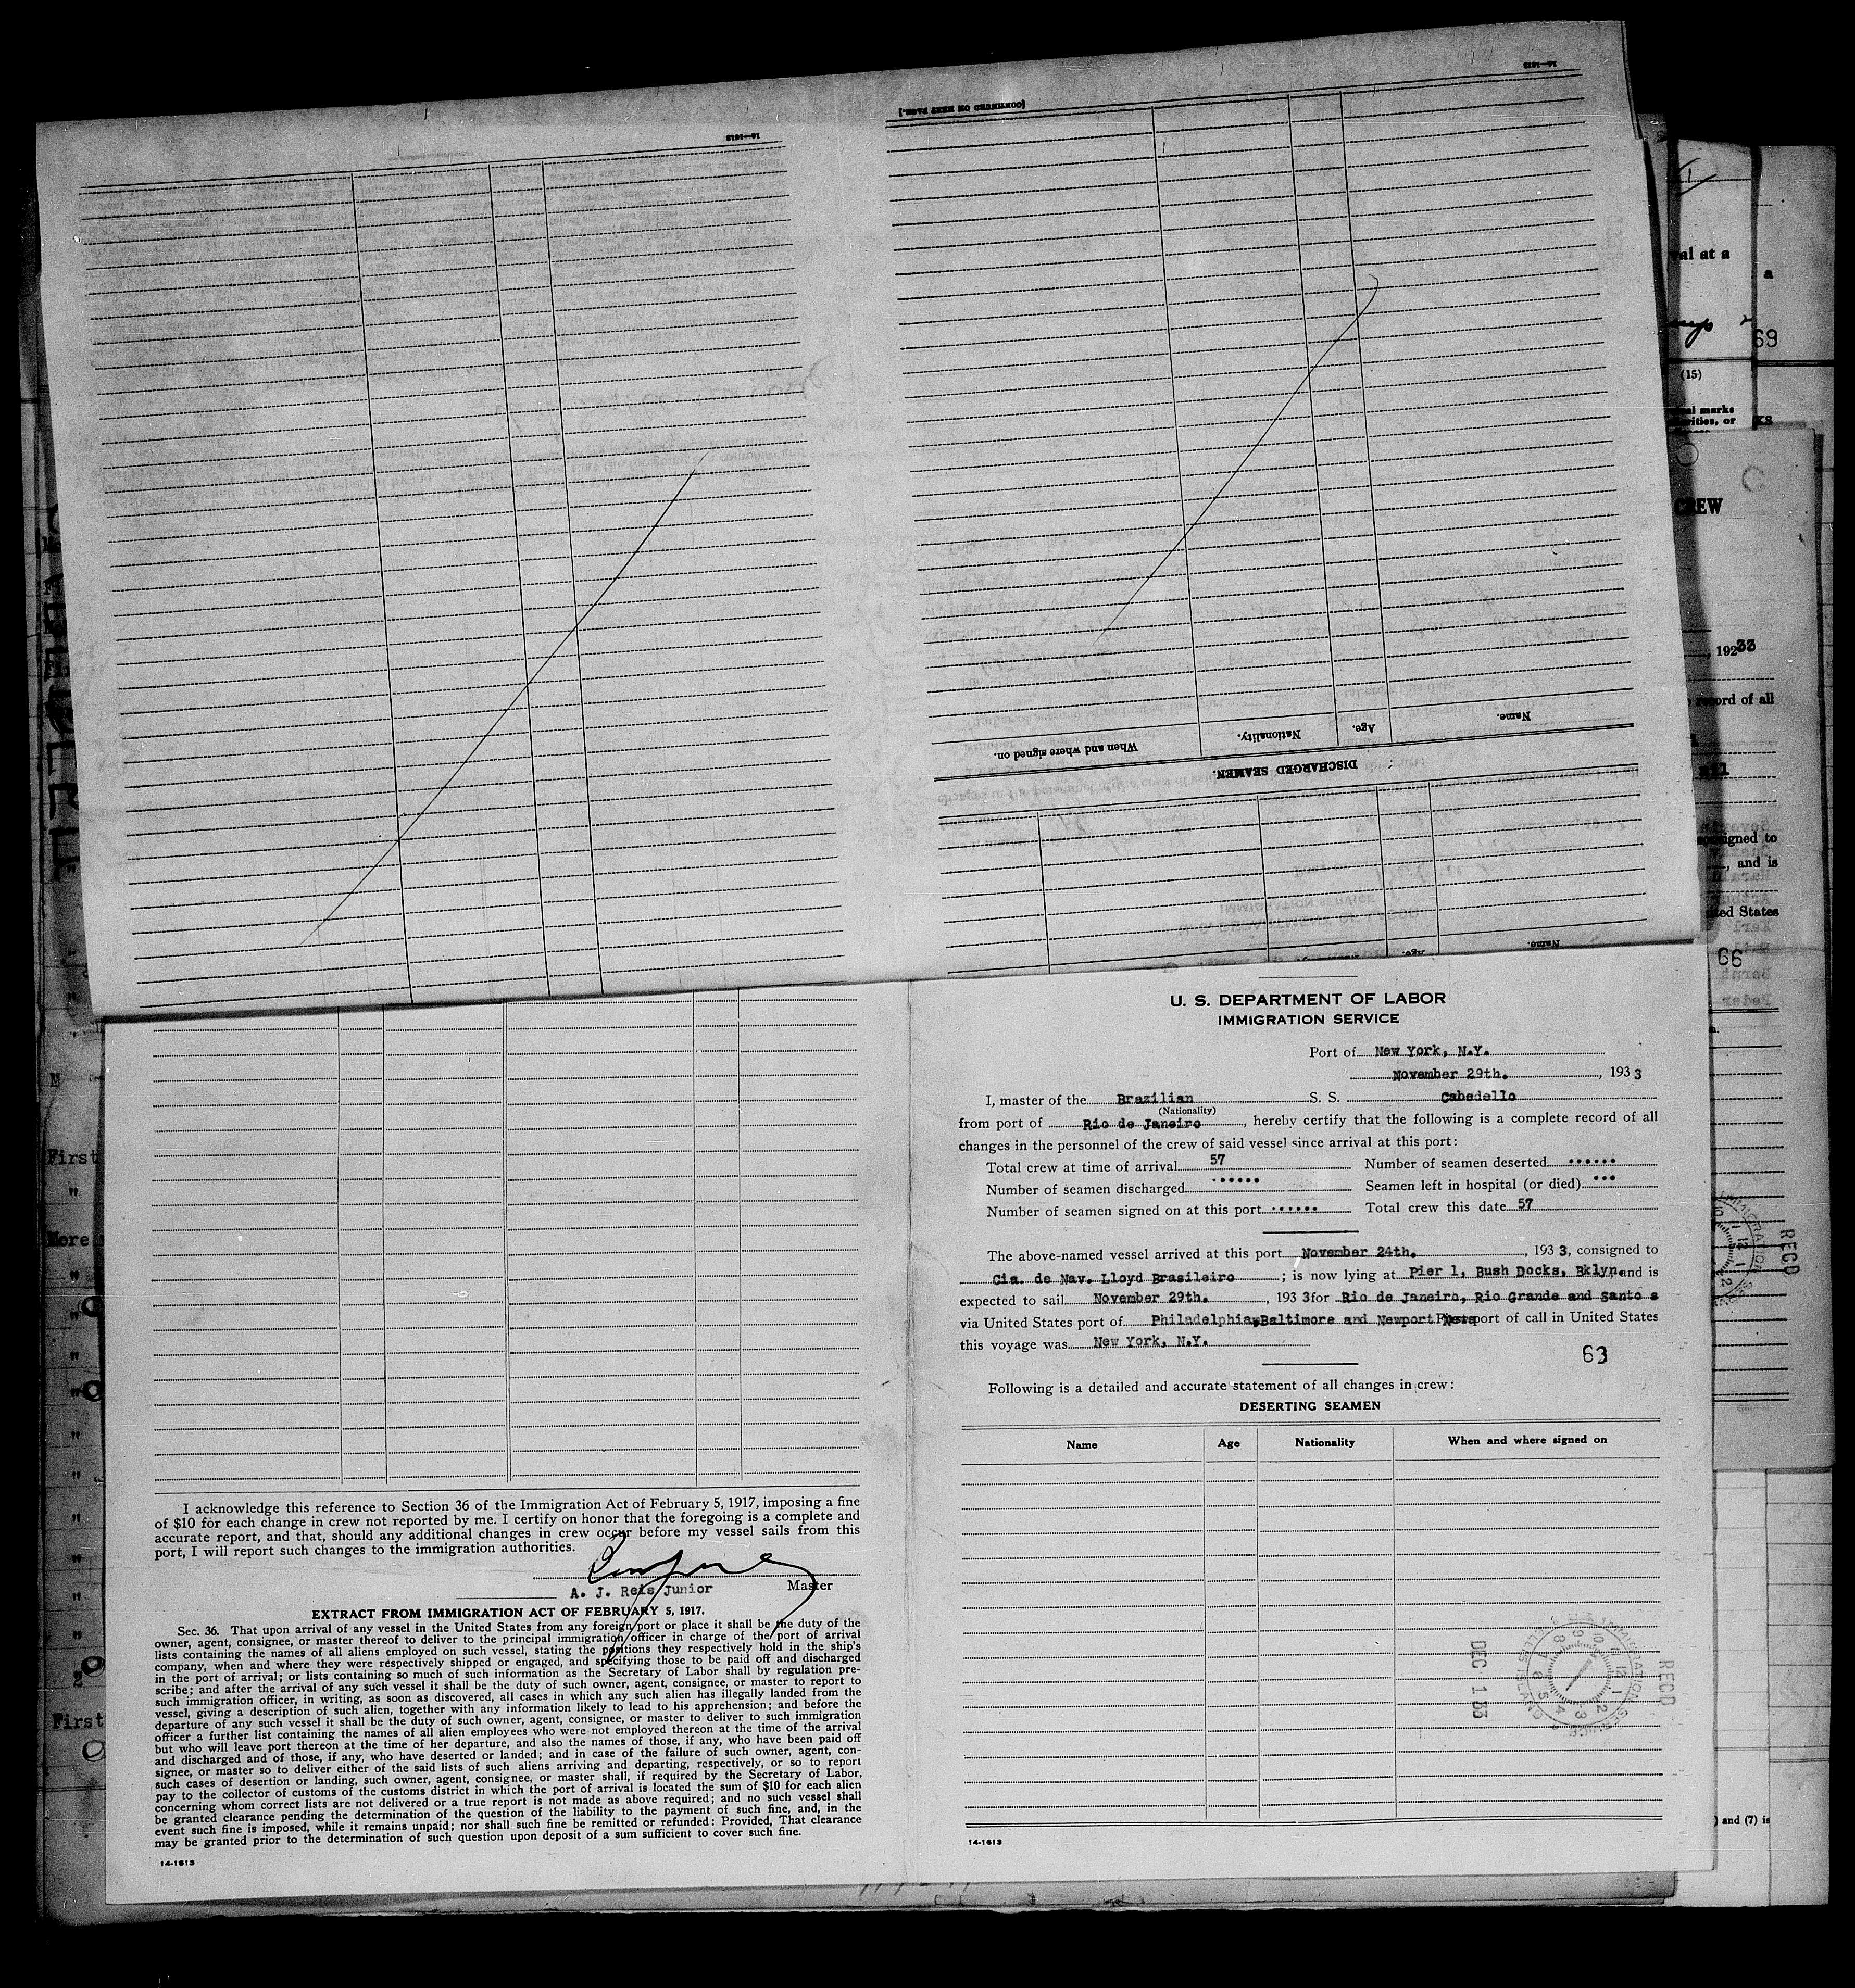 14-1613
[CONTINUED ON NEXT PAGE.]
14-1613
When and where signed on.
Nationality.
Age.
Name.
DISCHARGED SEAMEN.
Age.
Name.
val at a
a
69
(15)
marks
or
CREW
, 1933
record of all
signed to
, and is
ted States
66
First
"
More
"
"
"
"
"
"
"
"
2
First
) and (7) is
U. S. DEPARTMENT OF LABOR
IMMIGRATION SERVICE
Port of New York, N.Y.
November 29th. , 193 3
I, master of the Brazilian S. S. Cabedello
(Nationality)
from port of Rio de Janeiro , hereby certify that the following is a complete record of all
changes in the personnel of the crew of said vessel since arrival at this port:
Total crew at time of arrival 57 Number of seamen deserted ......
Number of seamen discharged ...... Seamen left in hospital (or died) ...
Number of seamen signed on at this port ...... Total crew this date 57
The above-named vessel arrived at this port November 24th. , 193 3, consigned to
Cia. de Nav. Lloyd Brasileiro ; is now lying at Pier 1, Bush Docks, Bklyn. and is
expected to sail November 29th. , 193 3 for Rio de Janeiro, Rio Grande and Santo s
via United States port of Philadelphia, Baltimore and Newport News port of call in United States
this voyage was New York, N.Y.
63
Following is a detailed and accurate statement of all changes in crew:
DESERTING SEAMEN
Name Age Nationality When and where signed on
DEC 1 33
RECD
RECD
14-1613
I acknowledge this reference to Section 36 of the Immigration Act of February 5, 1917, imposing a fine
of $10 for each change in crew not reported by me. I certify on honor that the foregoing is a complete and
accurate report, and that, should any additional changes in crew occur before my vessel sails from this
port, I will report such changes to the immigration authorities.
A. J. Reis Junior Master
EXTRACT FROM IMMIGRATION ACT OF FEBRUARY 5, 1917.
Sec. 36. That upon arrival of any vessel in the United States from any foreign port or place it shall be the duty of the
owner, agent, consignee, or master thereof to deliver to the principal immigration officer in charge of the port of arrival
lists containing the names of all aliens employed on such vessel, stating the positions they respectively hold in the ship's
company, when and where they were respectively shipped or engaged, and specifying those to be paid off and discharged
in the port of arrival; or lists containing so much of such information as the Secretary of Labor shall by regulation pre-
scribe; and after the arrival of any such vessel it shall be the duty of such owner, agent, consignee, or master to report to
such immigration officer, in writing, as soon as discovered, all cases in which any such alien has illegally landed from the
vessel, giving a description of such alien, together with any information likely to lead to his apprehension; and before the
departure of any such vessel it shall be the duty of such owner, agent, consignee, or master to deliver to such immigration
officer a further list containing the names of all alien employees who were not employed thereon at the time of the arrival
but who will leave port thereon at the time of her departure, and also the names of those, if any, who have been paid off
and discharged and of those, if any, who have deserted or landed; and in case of the failure of such owner, agent, con-
signee, or master so to deliver either of the said lists of such aliens arriving and departing, respectively, or so to report
such cases of desertion or landing, such owner, agent, consignee, or master shall, if required by the Secretary of Labor,
pay to the collector of customs of the customs district in which the port of arrival is located the sum of $10 for each alien
concerning whom correct lists are not delivered or a true report is not made as above required; and no such vessel shall
be granted clearance pending the determination of the question of the liability to the payment of such fine, and, in the
event such fine is imposed, while it remains unpaid; nor shall such fine be remitted or refunded: Provided, That clearance
may be granted prior to the determination of such question upon deposit of a sum sufficient to cover such fine.
14-1613